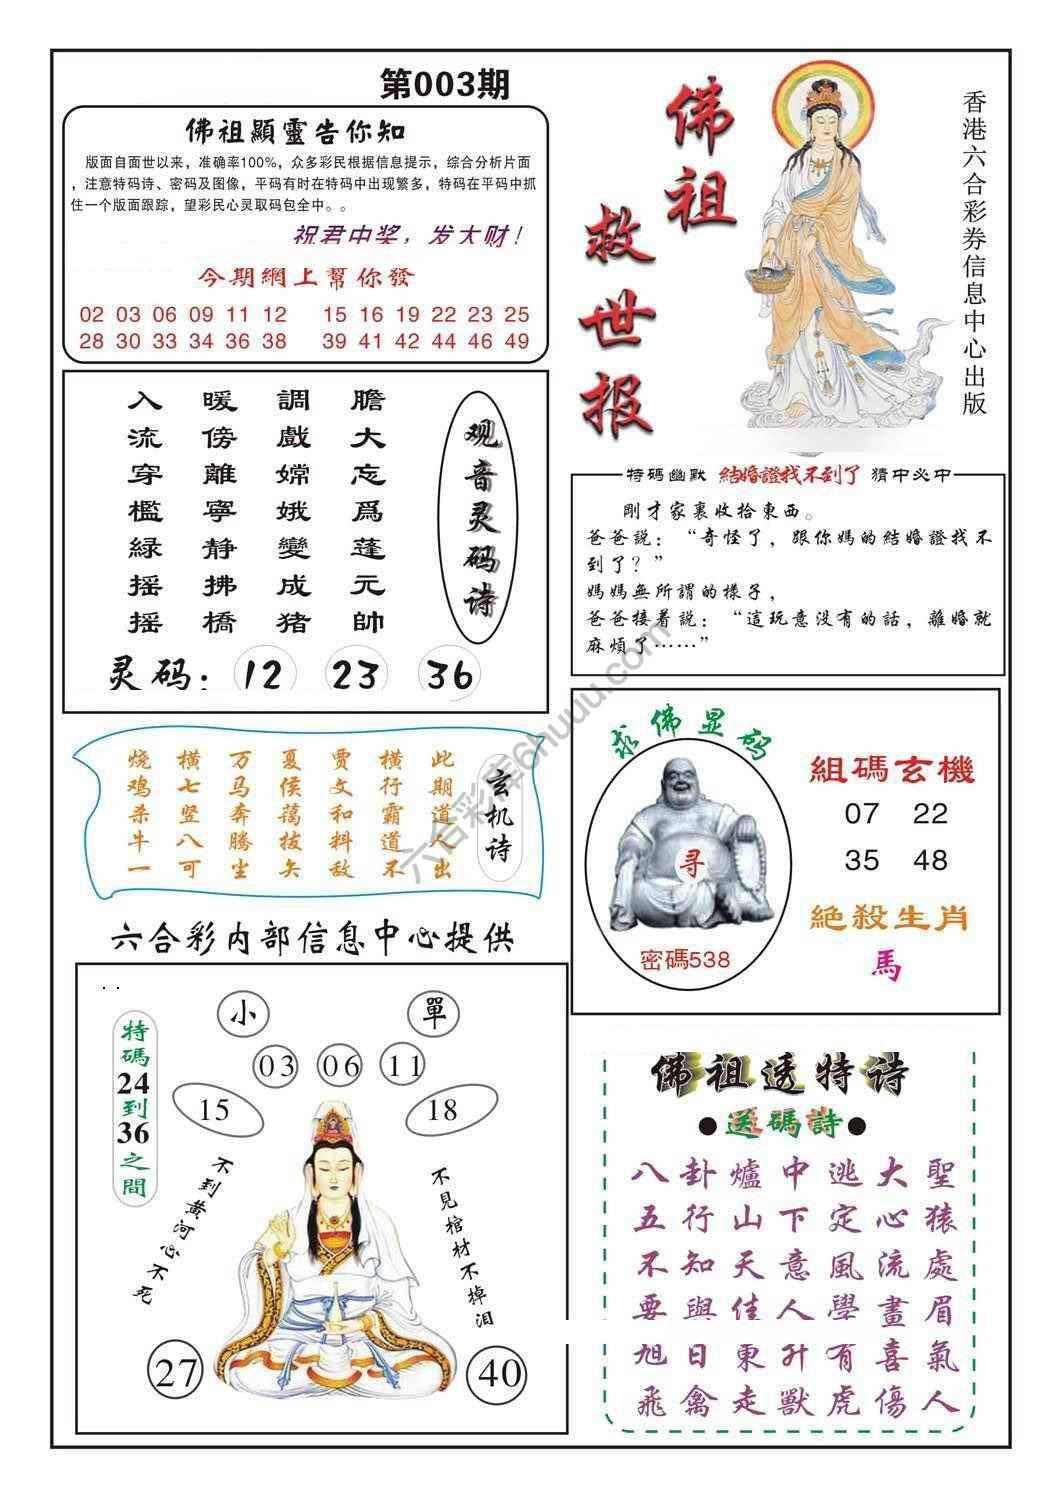 第003期
佛祖顯靈告你知
版面自面世以来，准确率100%，众多彩民根据信息提示，综合分析片面
，注意特码诗、密码及图像，平码有时在特码中出现繁多，特码在平码中抓
住一个版面跟踪，望彩民心灵取码包全中。。
祝君中奖，发大财！
今期網上幫你發
02 03 06 09 11 12 15 16 19 22 23 25
28 30 33 34 36 38 39 41 42 44 46 49
佛祖
救世报
香港六合彩券信息中心出版
观音灵码诗
膽大忘爲蓬元帥
調戲嫦娥變成猪
暖傍離寧静拂橋
入流穿檻緑摇摇
灵码：12 23 36
特碼幽默 結婚證找不到了 猜中必中
剛才家裏收拾東西。
爸爸説：“奇怪了，跟你媽的結婚證找不
到了？”
媽媽無所謂的樣子，
爸爸接着説：“這玩意没有的話，離婚就
麻煩了……”
玄机诗
此期道人出
横行霸道不
贾文和料敌
夏侯蔼拔矢
万马奔腾尘
横七竖八可
烧鸡杀牛一
求佛显码
寻
密碼538
組碼玄機
07 22
35 48
絶殺生肖
馬
六合彩内部信息中心提供
小 單
03 06 11
15 18
特碼24到36之間
不到黄河心不死
不見棺材不掉泪
27 40
佛祖透特诗
●送碼詩●
八卦爐中逃大聖
五行山下定心猿
不知天意風流處
要與佳人學畫眉
旭日東升有喜氣
飛禽走獸虎傷人
六合彩库6huuu.com